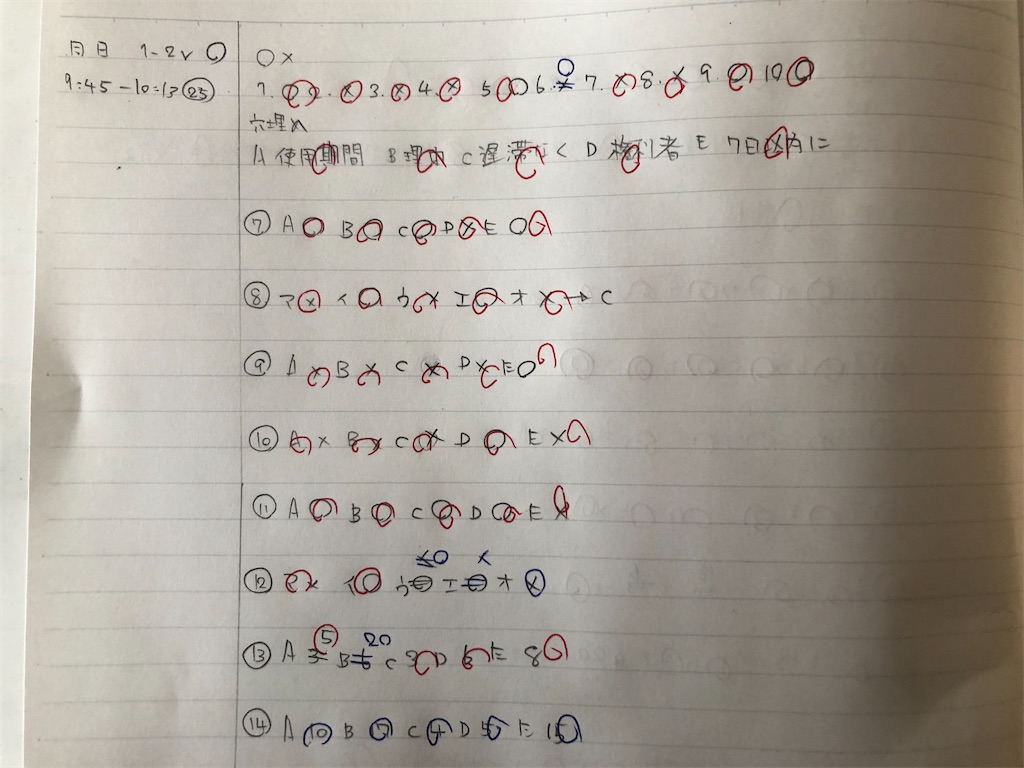 月日 1-2v ○
9:45-10:13 (25)
○×
1. ○ 2. × 3. × 4. × 5 ○ 6. ○ 7. × 8. × 9. ○ 10 ○
穴埋め
A 使用期間 B 理由 C 遅滞なく D 権利者 E 7日以内に
⑦ A ○ B ○ C ○ D × E ○
⑧ ア × イ ○ ウ × エ ○ オ ×→C
⑨ A × B × C × D × E ○
⑩ A × B × C × D ○ E ×
⑪ A ○ B ○ C ○ D ○ E ×
⑫ × イ ○ ウ ○ エ × オ ×
⑬ A 5 B 20 C 3 D E 8
⑭ A 10 B C D E 15